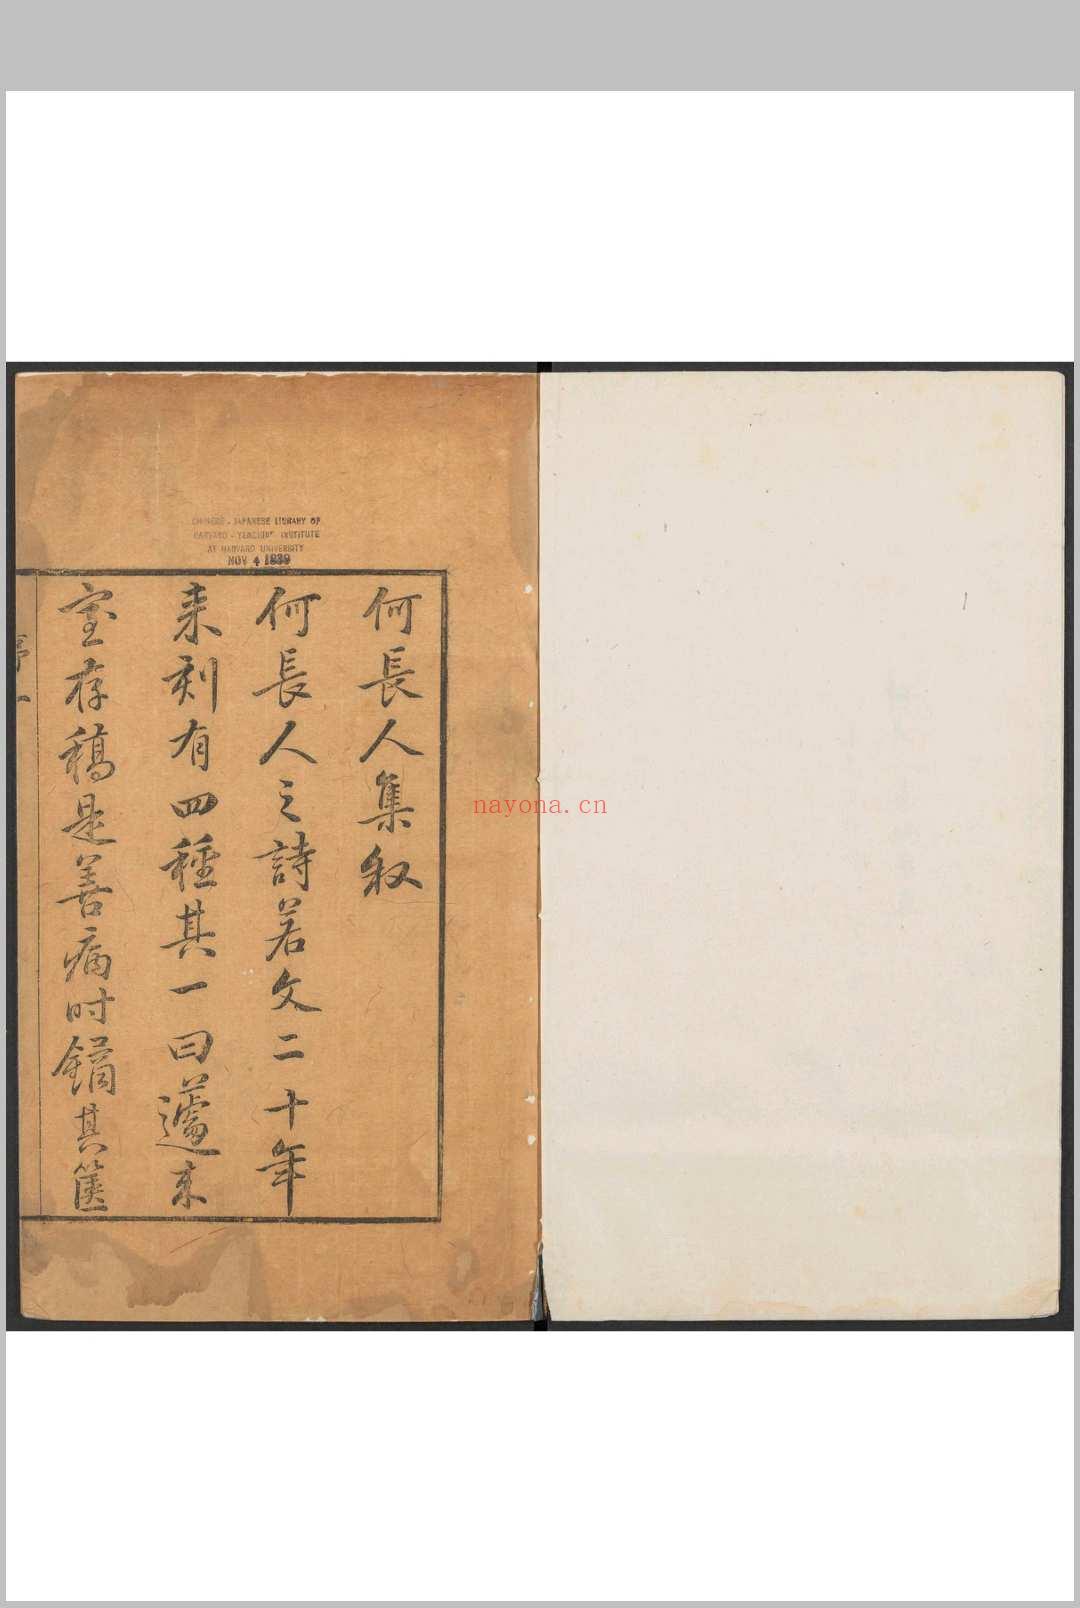 CHINESE - JAPANESE LIBRARY OF
HARVARD - YENCHING INSTITUTE
AT HARVARD UNIVERSITY
NOV 4 1939
何長人集叙
何長人之詩若文二十年
来刻有四種其一曰蘧来
室存稿是善病时鐍其篋
序一
nayona.cn